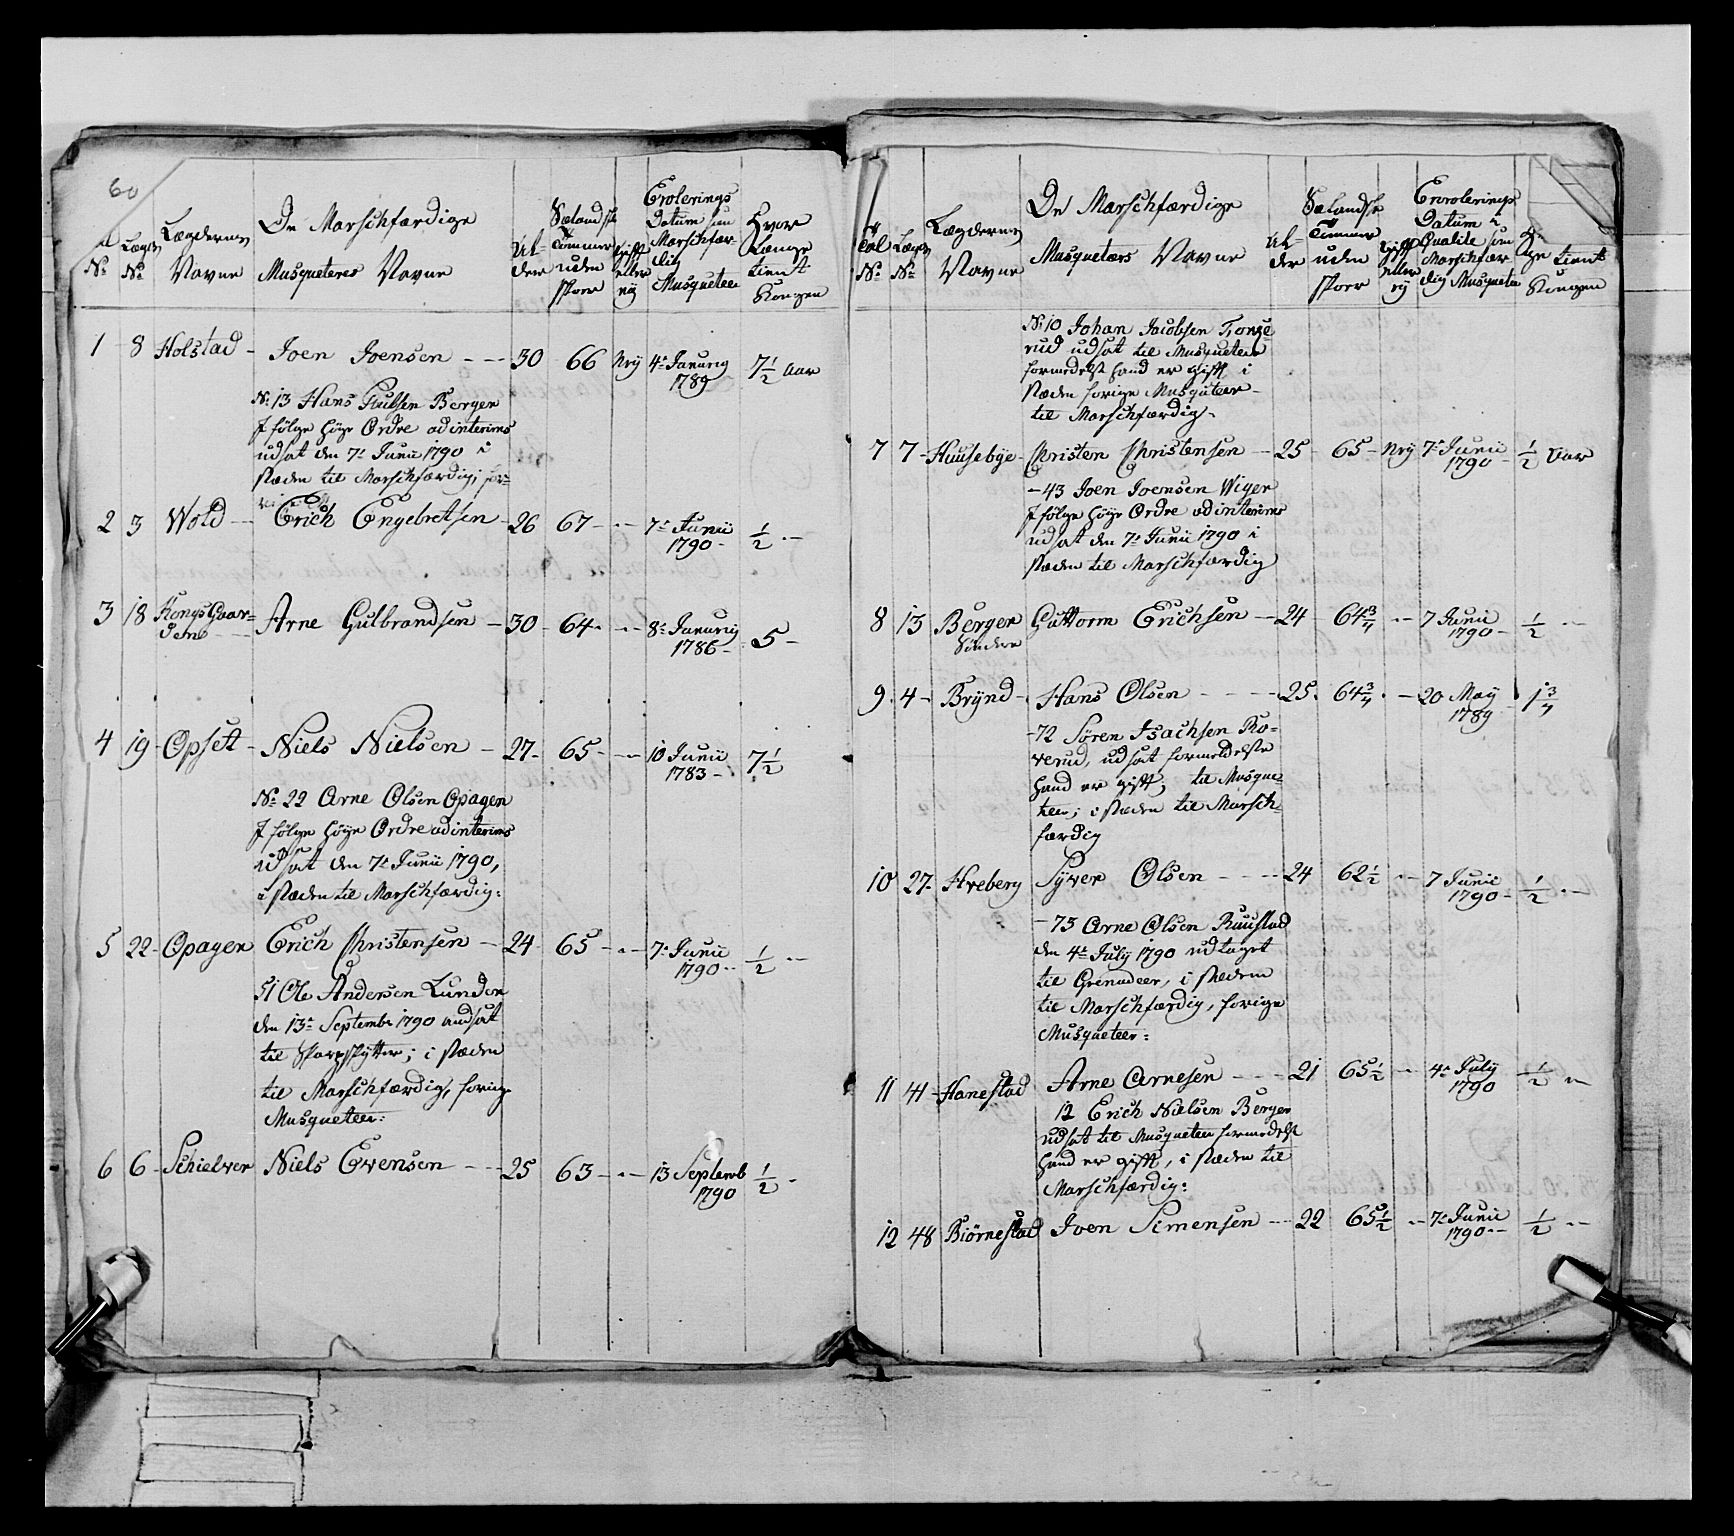 60
Lægdernes
Navne
De Marschfærdige
Musqueteres Navne
Al-
der
Sælandske
Tommer
uden
skoer
gift
eller
ey
Enrolerings
Datum som
Marschfær-
dig
Musqueteer
Hvor
Længe
tient
Kongen
No
Lægds
No
1 8 Holstad - Joen Joensen - - - 30 66 Ney 4de Januarij 1789 7 1/2 Aar
No 13 Hans Berger
I følge høye Ordre ad interims
udsat den 7de Junii 1790 i
stæden til Marschfærdig;
2 3 Wold - - Erich Engebretsen - 26 67 - - - 7de Junii 1790 - 1/2 - -
3 18 KongsGaar-
dene - - Arne Gulbrandsen - 30 - 64 - - - 8de Januarij 1786 - 5 -
4 19 - Opset - Niels Nielsen - 27 - 65 - - - 10 Junii 1783 - 7 1/2
No 22 Arne Olsen Opagen
I følge høye Ordre ad interims
udsat den 7de Junii 1790,
i stæden til Marschfærdig:
5 22 - Opagen Erich Christensen - 24 - 65 - - - 7de Junii 1790 - - 1/2 - -
51 Ole Andersen Lunden
den 13de Septembr 1790 andsat
til Skarpskytter; i stæden
til Marschfærdig, forrige
Musqueteer:
6 6 - Schielver Niels Evensen - - - 25 63 - - - 13 Septemb 1790 1/2 -
No
Lægds
No
Lægdernes
Navne
De Marschfærdige
Musqueteers Navne
Al-
der
Sælandske
Tommer
uden
skoer
gift
eller
ey
Enrolerings
Datum i
Qualite som
Marschfær-
dig Musqueteer
tient
Kongen
No 10 Johan Jacobsen
rud udsat til Musqueteer
formedelst hand er gift i
stæden forrige Musqueteer -
til Marschfærdig -
7 7 - Huusebye - Christen Christensen - - 25 - 65 - Ney 7de Junii 1790 - 1/2 Aar
- 43 Joen Joensen Wiger
I følge høye Ordre ad interims
udsat den 7de Junii 1790 i
stæden til Marschfærdig
8 13 Berger
Søndere Guttorm Erichsen - - 24 64 3/4 - - 7 Junii 1790 - 1/2 - -
9 4 - Brynd - Hans Olsen - - - - 25 64 3/4 - - 20 May 1789 1 3/4
- 72 Søren Isachsen Ro-
verud, udsat formedelste
hand er gift; til Musque-
teer; i stæden til Marsch-
færdig
10 27 - Hveberg Syver Olsen - - - - 24 62 1/2 - - 7 Junii 1790 - 1/2 - -
- 73 Arne Olsen Ruustad
den 4de July 1790 udtaget
til Grenadeer, i stædene
til Marschfærdig, forrige
Musqueteer:
11 41 - Hanestad Arne Arnesen - - - 21 65 1/2 - - 4de July 1790 1/2 - -
12 Erich Nielsen Berger
udsat til Musqueteer formedelst
hand er gift, i stæden til
Marschfærdig:
12 48 Biørnestad Joen Simensen - - 22 65 1/2 - - 7de Junii 1790 - - 1/2 - -